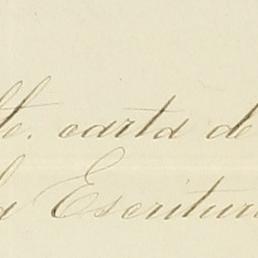 te. carta de
la Escritur